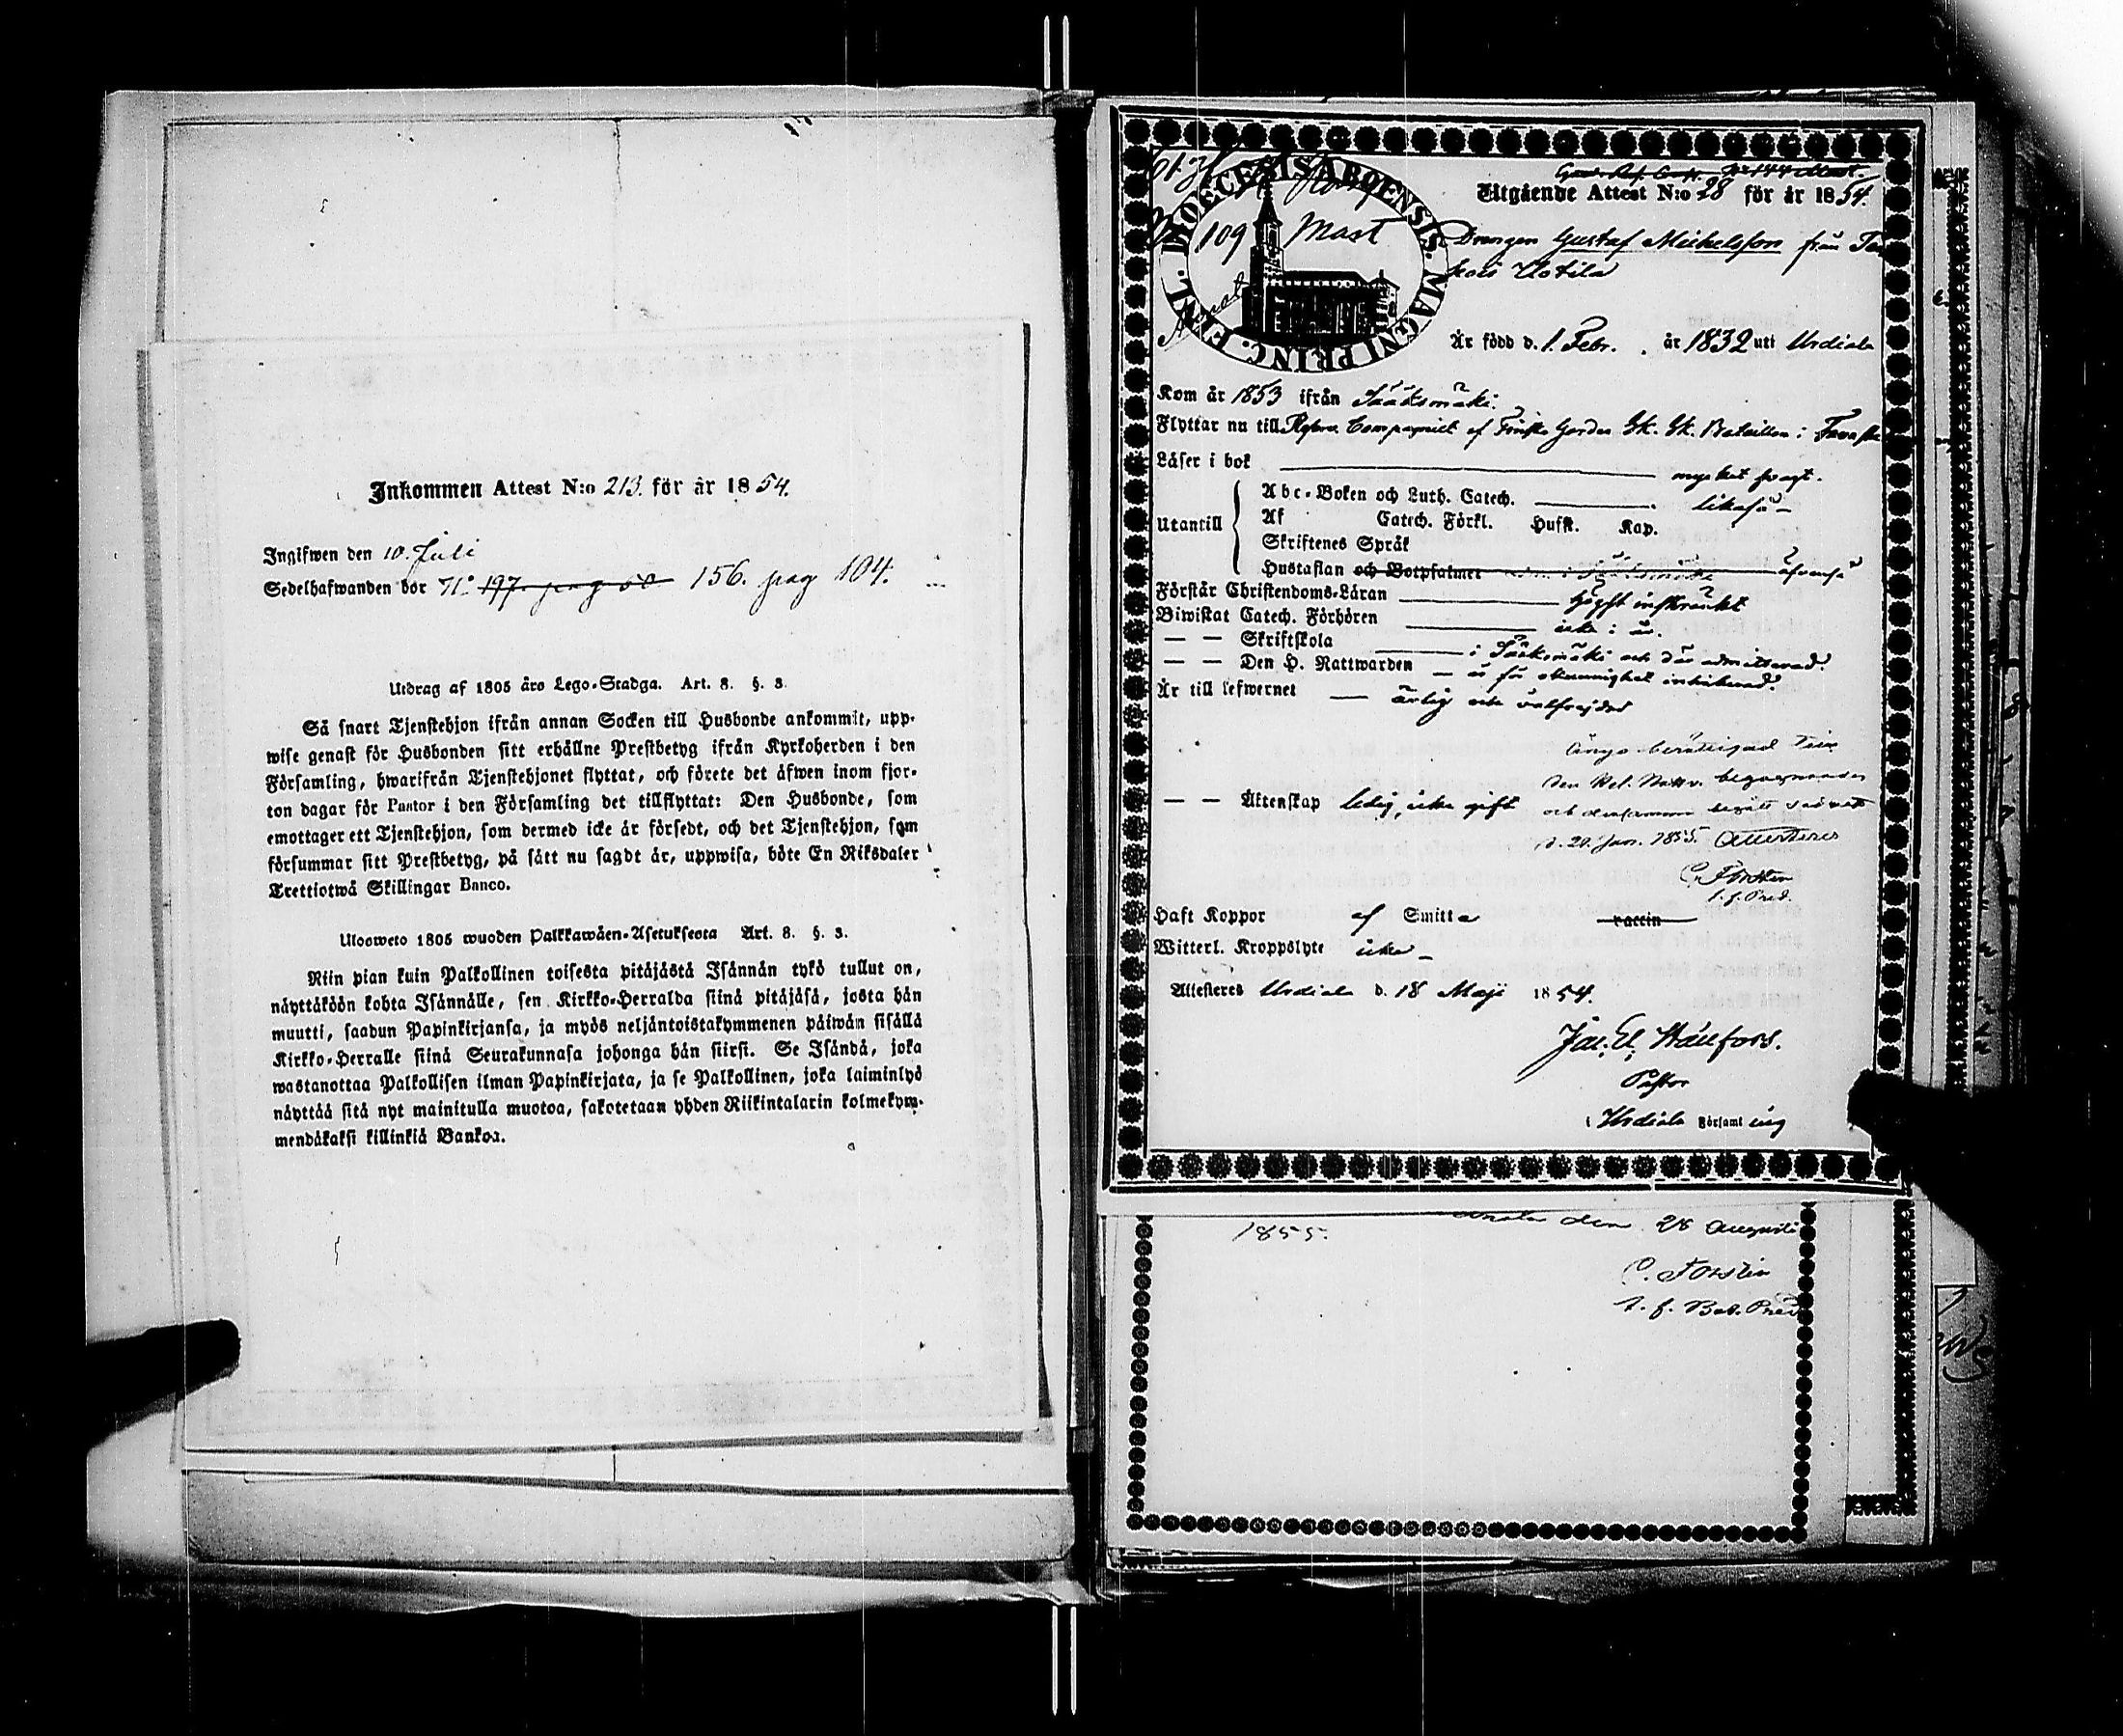 Inkommen Attest N:o 213. för år 1854.
Ingifwen den 10. Juli
Sedelhafwanden bor N:o 197. pag 50 156. pag 104.
Utdrag af 1805 års Lego-Stadga. Art. 8. §. 3.
Så snart Tjenstehjon ifrån annan Socken till Husbonde ankommit, upp-
wise genast för Husbonden sitt erhållne Prestbetyg ifrån Kyrkoherden i den
Församling, hwarifrån Tjenstehjonet flyttat, och förete det äfwen inom fjor-
ton dagar för Pastor i den Församling det tillflyttat: Den Husbonde, som
emottager ett Tjenstehjon, som dermed icke är försedt, och det Tjenstehjon, som
försummar sitt Prestbetyg, på sätt nu sagdt är, uppwisa, böte En Riksdaler
Trettiotwå Skillingar Banco.
Ulosweto 1805 wuoden Palkkawäen-Asetuksesta Art. 8. §. 3.
Niin pian kuin Palkollinen toisesta pitäjästä Isännän tykö tullut on,
näyttäköön kohta Isännälle, sen Kirkko-Herralda siinä pitäjäsä, josta hän
muutti, saadun Papinkirjansa, ja myös neljäntoistakymmenen päiwän sisällä
Kirkko-Herralle siinä Seurakunnasa johonga hän siirsi. Se Isändä, joka
wastanottaa Palkollisen ilman Papinkirjata, ja se Palkollinen, joka laiminlyö
näyttää sitä nyt mainitulla muotoa, sakotetaan yhden Riikintalarin kolmekym-
mendäkaksi killinkiä Bankoa.
FINL. DIOECESIS ABOENSIS. MAGNI PRINC.
109 Mast
Utgående Attest N:o 28 för år 1854.
Drängen Gustaf Michelsson från
Uotila
Är född d. 1. Febr. år 1832 uti Urdiala
Kom år 1853 ifrån Sääksmäki.
Flyttar nu till Reserv Compagniet af Finska Gardes Sk. Sk. Bataillon i Tavaste
Läser i bok mycket svagt.
Utantill
Abc-Boken och Luth. Catech. likaså
Af Catech. Förkl. Hufst. Kap.
Skriftenes Språk
Hustaflan och Botpsalmer äfvenså
Förstår Christendoms-Läran högst inskränkt
Biwistat Catech. Förhören icke i år.
— — Skriftskola i Sääksmäki och där admitterad.
— — Den H. Nattwarden
Är till lefwernet ärlig och välfrejdad
Ånyo berättigad till
den Hel. Nattv. begagnande
och densamma begått
d. 20. Jan. 1855. Attesteres
C. Forstén
t. f. Pred.
— — Äktenskap ledig, icke gift
Haft Koppor af Smitta vaccin
Witterl. Kroppslyte icke
Attesteres Urdiala d. 18 Maji 1854.
Pastor
i Urdiala Församling
den 28 Augusti
1855.
C. Forstén
t. f. Bat. Pred.